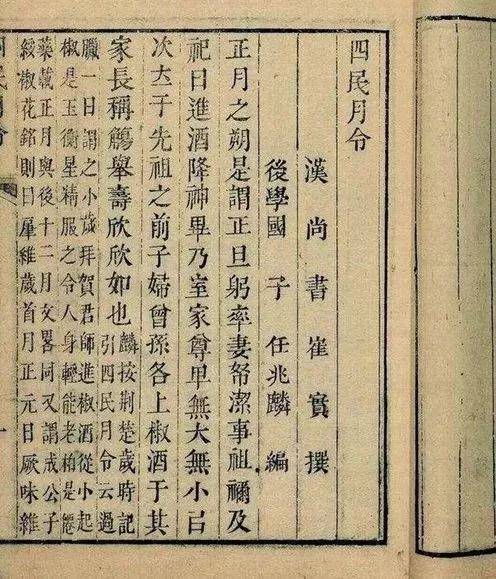 四民月令
漢尚書崔實撰
後學國子任兆麟編
正月之朔是謂正旦躬率妻孥潔事祖禰及
祀日進酒降神畢乃室家尊卑無大無小㠯
次于先祖之前子婦曾孫各上椒酒于其
家長稱觴舉壽欣欣如也
麟按荆楚歲時記
引四民月令云過
臘一日謂之小歲拜賀君師進椒酒從小起
椒是玉衡星精服之令人身輕能老柏是僊
藥載正月與後十二月文畧同又謂成公子
綏椒花銘則曰肇維歲首月正元日厥味維
民月令
一